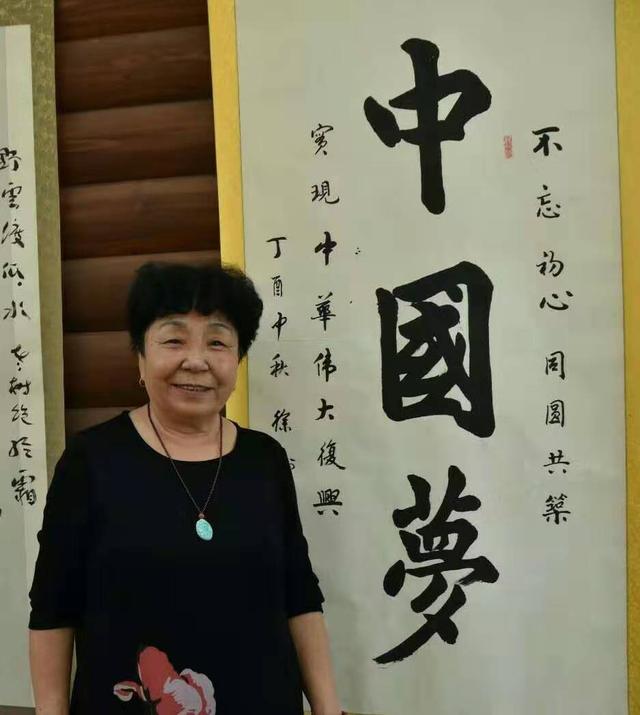 不忘初心同圓共築
中國夢
實現中華伟大復興
丁酉中秋徐
野雲渡低水
霜